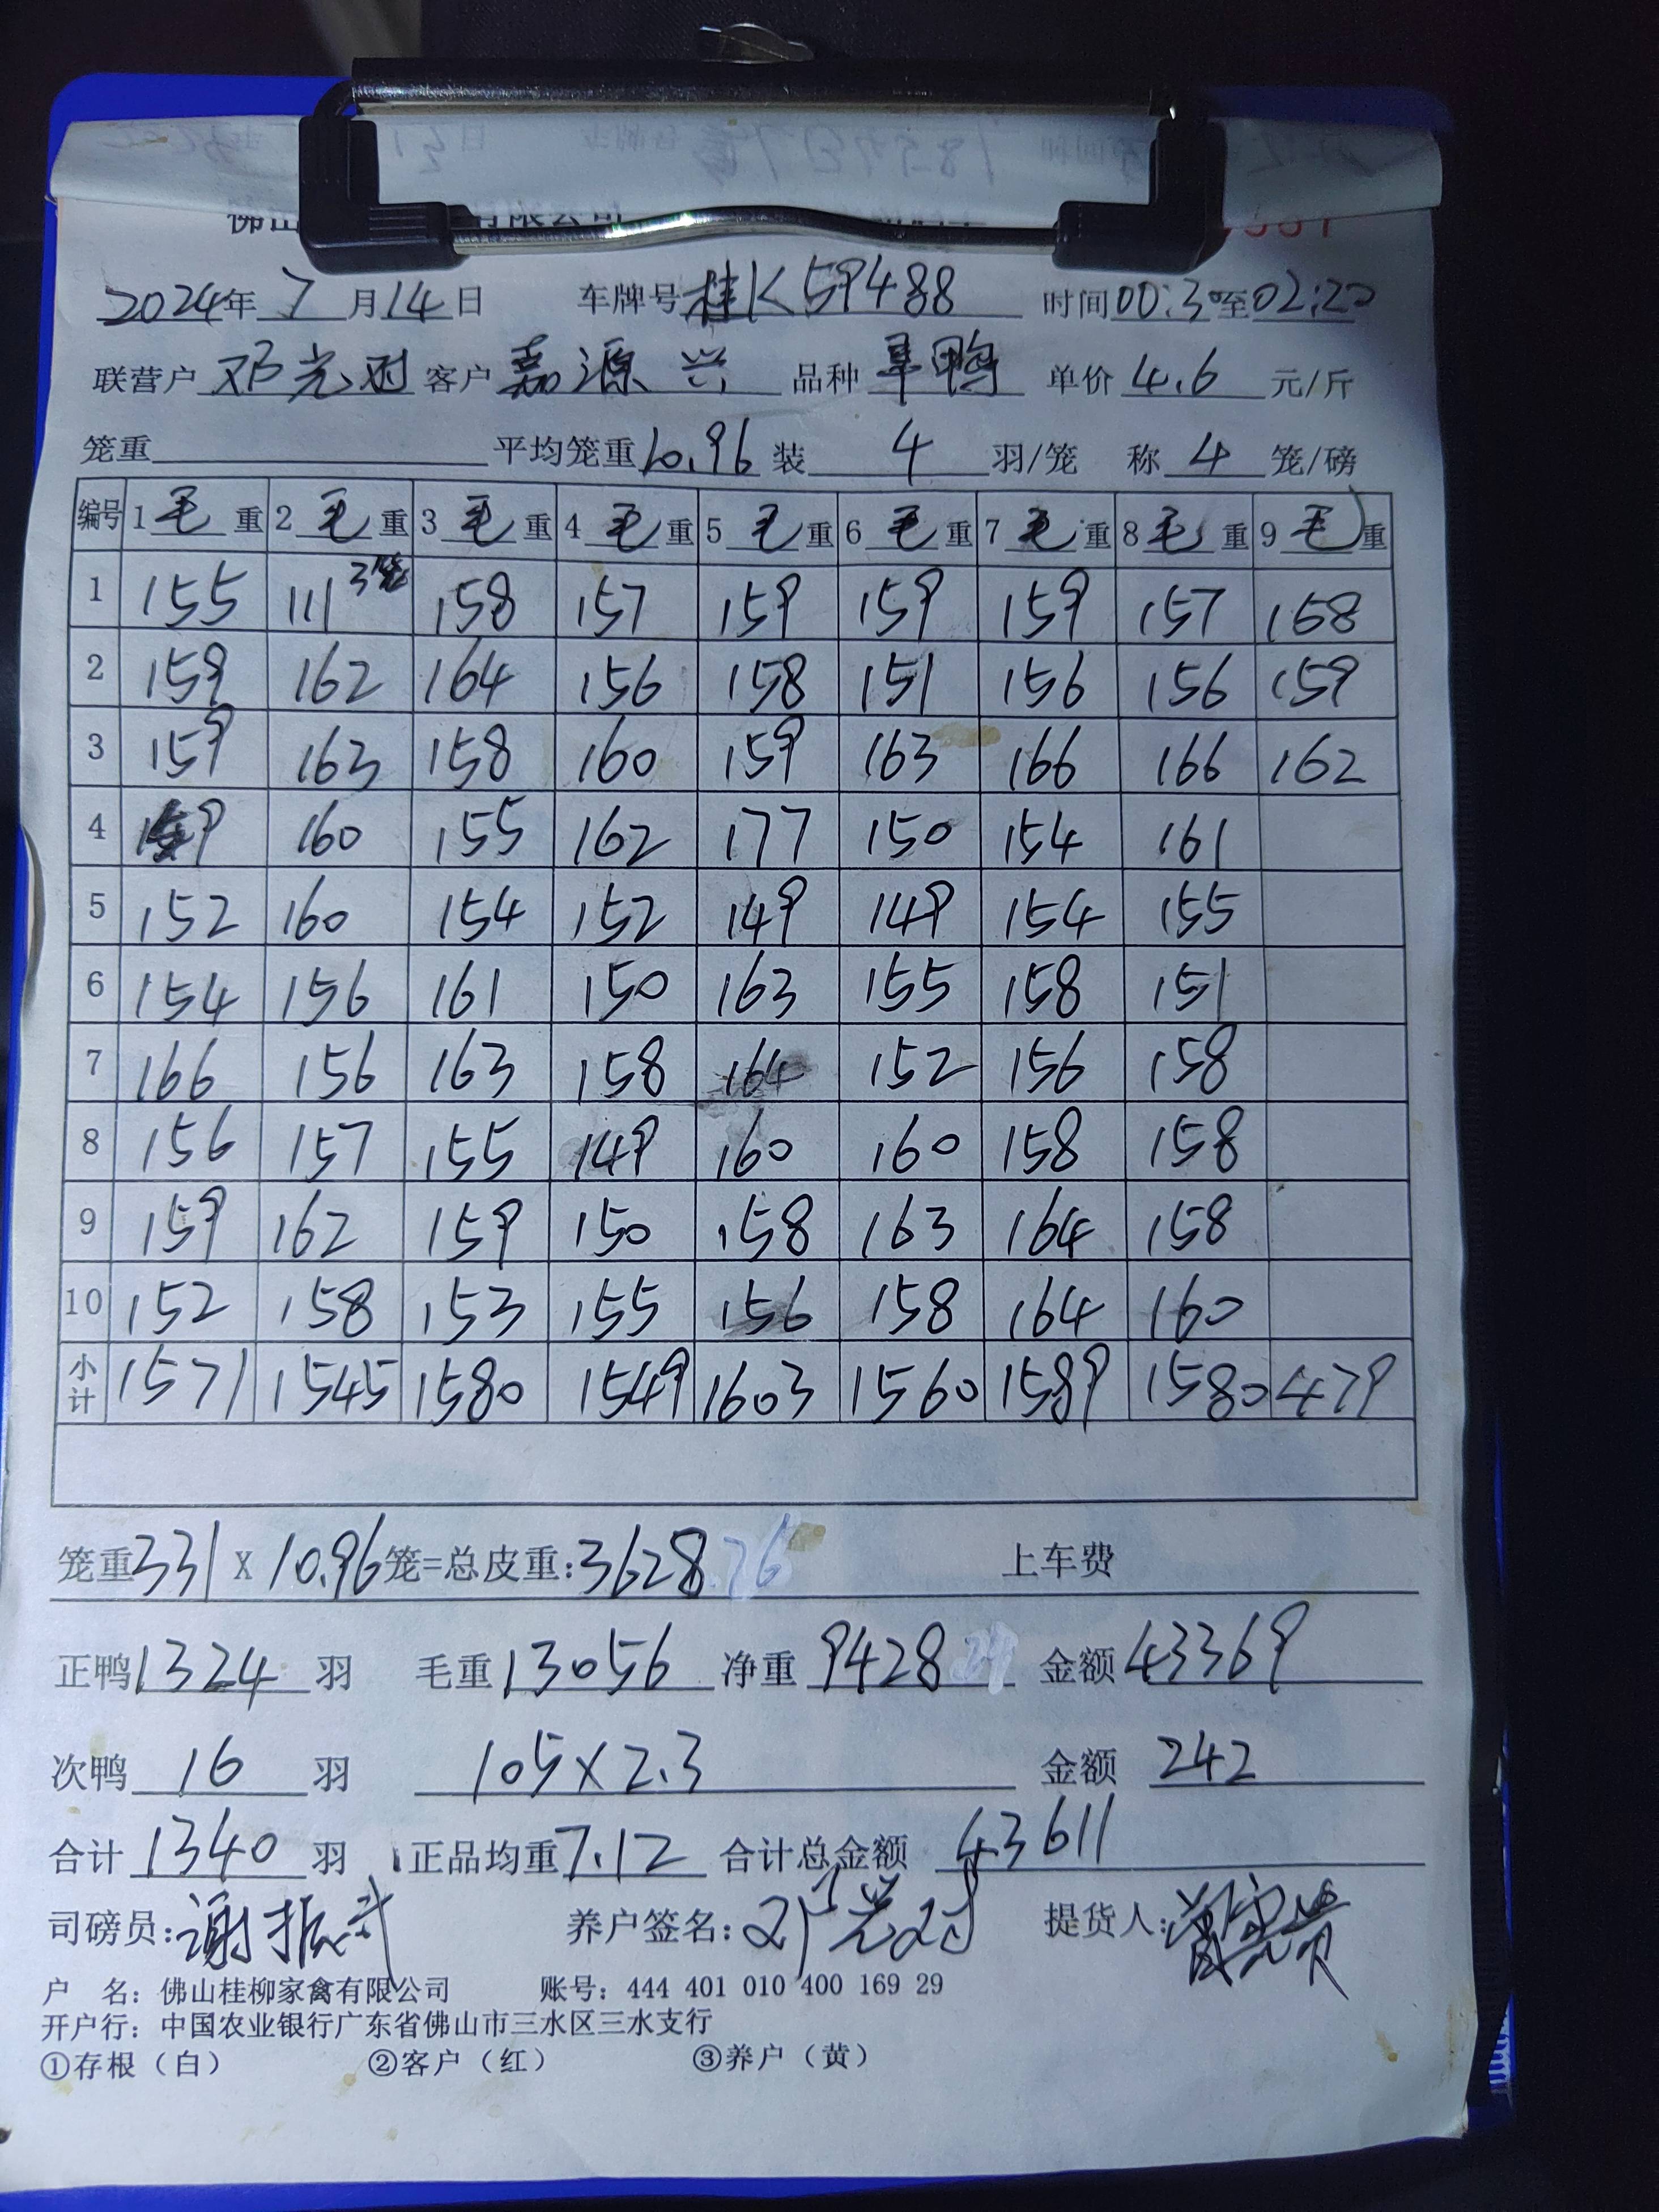 有限公司
2024年 7 月 14 日 车牌号 桂K59488 时间 00:30 至 02:20
联营户 邓光对 客户 嘉源兴 品种 旱鸭 单价 4.6 元/斤
笼重 平均笼重 10.96 装 4 羽/笼 称 4 笼/磅
编号 1 毛 重 2 毛 重 3 毛 重 4 毛 重 5 毛 重 6 毛 重 7 毛 重 8 毛 重 9 毛 重
1 155 111 3笼 158 157 159 159 159 157 158
2 159 162 164 156 158 151 156 156 159
3 159 163 158 160 159 163 166 166 162
4 159 160 155 162 177 150 154 161
5 152 160 154 152 149 149 154 155
6 154 156 161 150 163 155 158 151
7 166 156 163 158 164 152 156 158
8 156 157 155 149 160 160 158 158
9 159 162 159 150 158 163 164 158
10 152 158 153 155 156 158 164 160
小计 1571 1545 1580 1549 1603 1560 1589 1580 479
笼重 331 X 10.96 笼=总皮重: 3628.76 上车费
正鸭 1324 羽 毛重 13056 净重 9428 金额 43369
次鸭 16 羽 105×2.3 金额 242
合计 1340 羽 正品均重 7.12 合计总金额 43611
司磅员: 谢振武 养户签名: 邓光对 提货人:
户 名: 佛山桂柳家禽有限公司 账号: 444 401 010 400 169 29
开户行: 中国农业银行广东省佛山市三水区三水支行
①存根(白) ②客户(红) ③养户(黄)